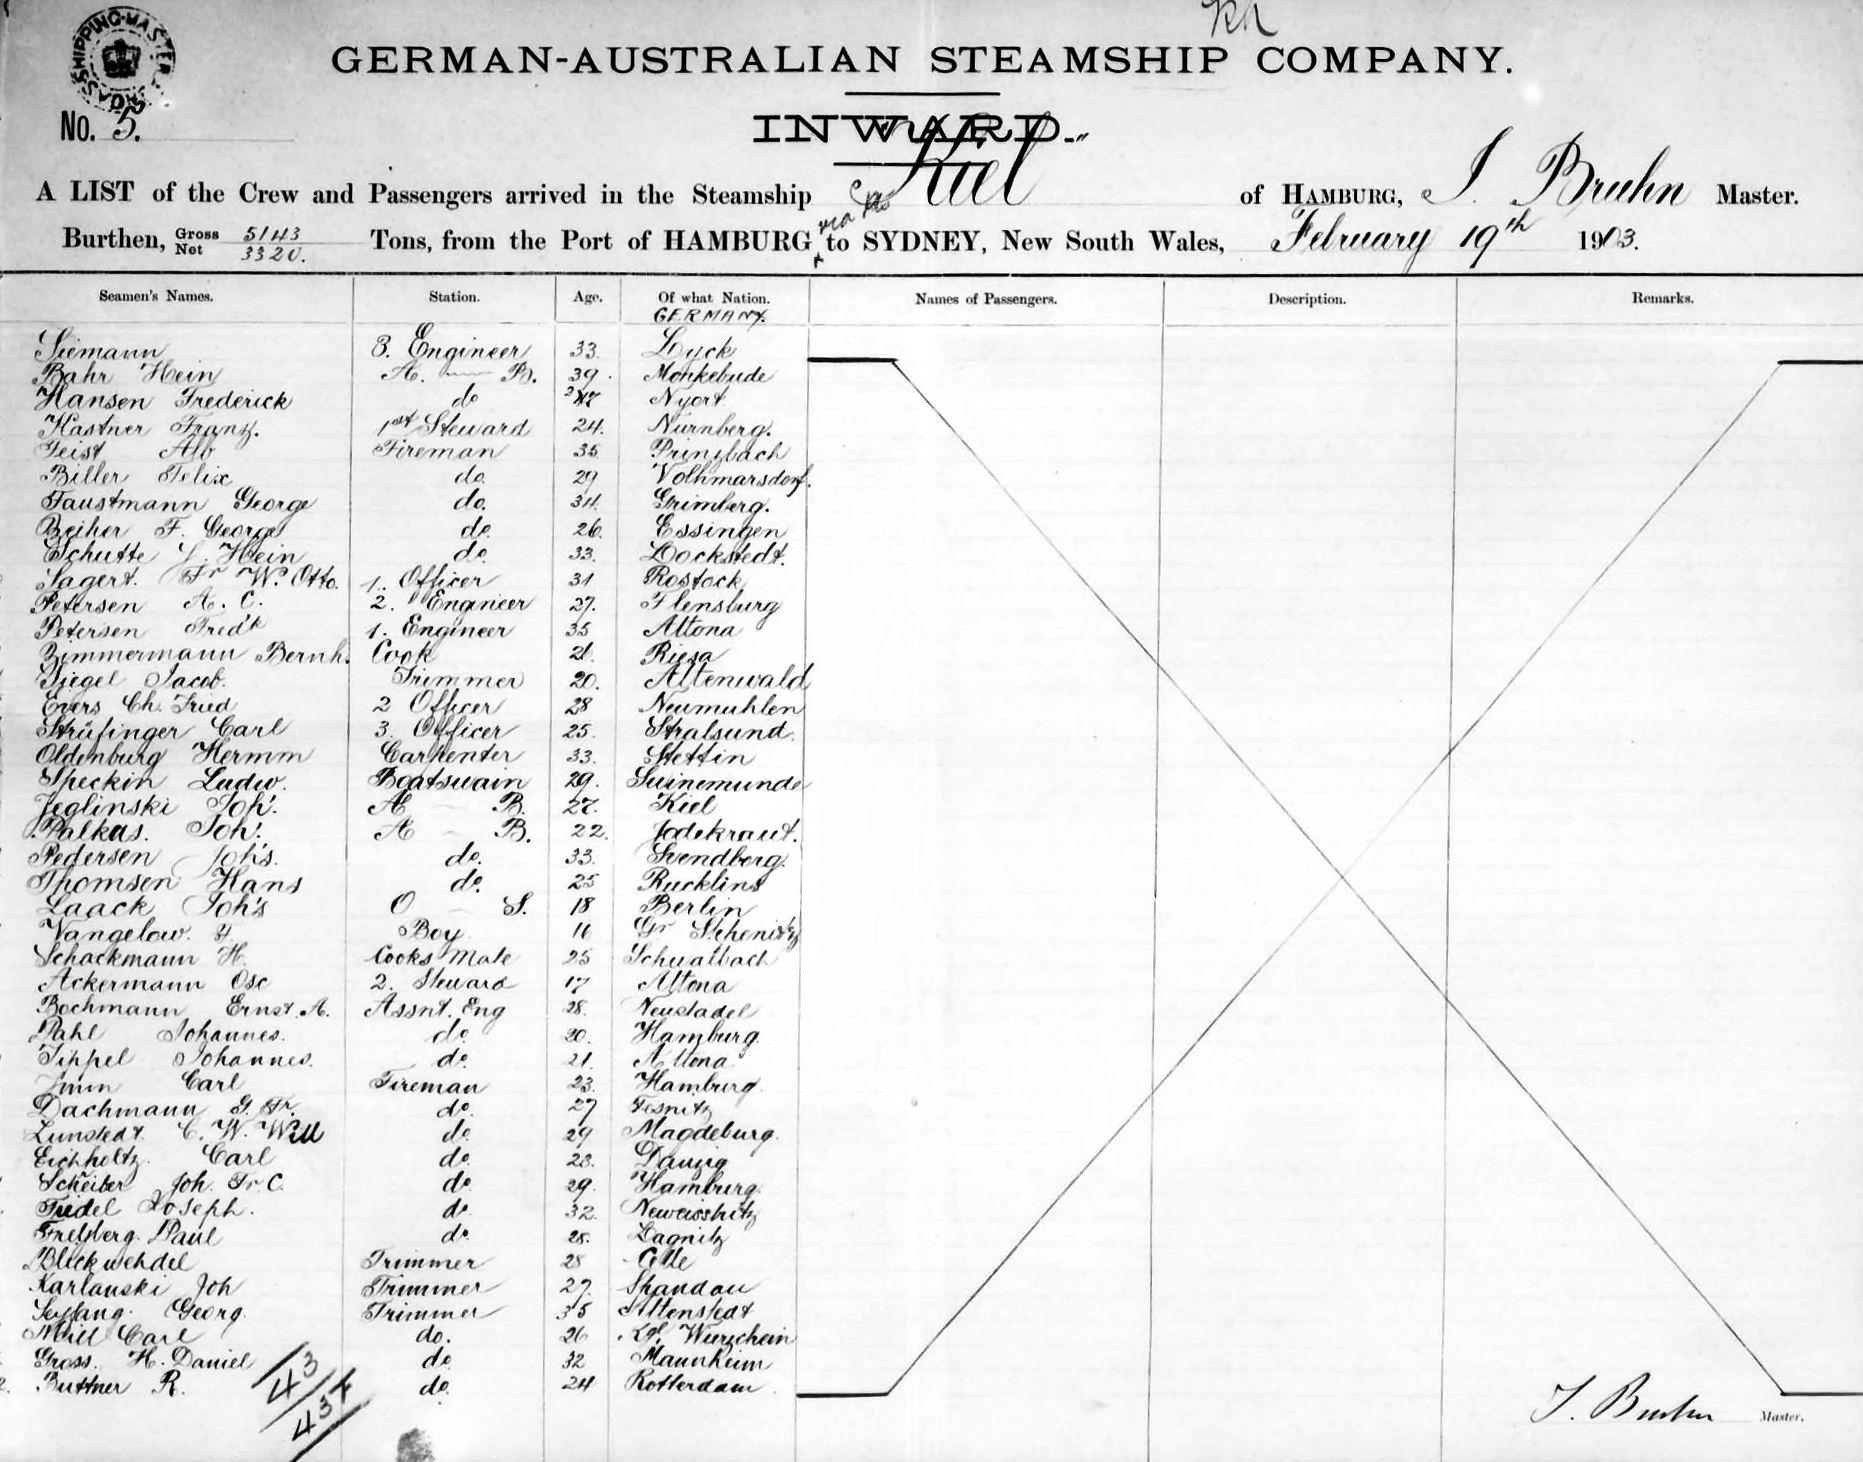 SHIPPING MASTER
GERMAN-AUSTRALIAN STEAMSHIP COMPANY.
No. 5.
INWARD.
A LIST of the Crew and Passengers arrived in the Steamship "Kiel" of HAMBURG, J. Bruhn Master.
Burthen, Gross 5143 Net 3320. Tons, from the Port of HAMBURG via to SYDNEY, New South Wales, February 19th 1903.
Seamen's Names. Station. Age. Of what Nation. Names of Passengers. Description. Remarks.
GERMANY.
Siemann 3. Engineer 33. Lyck
Bahr Hein A. B. 39. Monkebude
Hansen Frederick do Nyort
Kastner Franz. 1st Steward 24. Nurnberg.
Geist Alb Fireman 35 Prinzbach
Biller Felix do. 29 Volkmarsdorf.
Faustmann George do. 34. Grimberg.
Beiher F. George do. 26. Essingen
Schutte J. Hein do. 33. Lockstedt.
Sagert. Fr W. Otto. 1. Officer 31 Rostock
Petersen A. C. 2. Engineer 27. Flensburg
Petersen Fred'k 1. Engineer 35 Altona
Zimmermann Bernh. Cook 21. Riesa
Siegel Jacob. Trimmer 20. Altenwald
Evers Ch. Fried 2 Officer 28 Neumuhlen
Strüfinger Carl 3. Officer 25. Stralsund.
Oldenburg Hermm Carpenter 33. Stettin
Speckin Ludw. Boatswain 29. Suinemunde
Jeglinski Joh. A B. 27. Kiel
Palkus. Joh. A B. 22. Jodekraut.
Pedersen Joh's. do. 33. Svendberg.
Thomsen Hans do. 25 Rucklins
Laack Joh's O S. 18 Berlin
Vangelow. Boy 16 Gr
Schackmann H. Cooks Mate 25 Schwalbach
Ackermann Osc 2. Steward 17 Altona
Bochmann Ernst. A. Assnt. Eng 28. Neustadel
Pahl Johannes. do. 20. Hamburg.
Tippel Johannes. do. 21. Altona
Carl Fireman 23. Hamburg.
Dachmann G. Fr. do. 27 Tesnitz
Lunstedt. C. W. Will do. 29 Magdeburg.
Eichholtz. Carl do. 28. Danzig
Scheiber Joh. Fr. C. do. 29. Hamburg.
Fiedel Joseph. do 32.
Freiberg. Paul do 28. Lagnitz
Blickwehdel Trimmer 28 Celle
Karlauski Joh Trimmer 27. Spandau
Seyfang. Georg. Trimmer 35 Altenstedt
Carl do. 26 Wurzchein
Gross. H. Daniel do 32 Mannheim
Buttner R. do. 24 Rotterdam
43
43+
J. Bruhn Master.